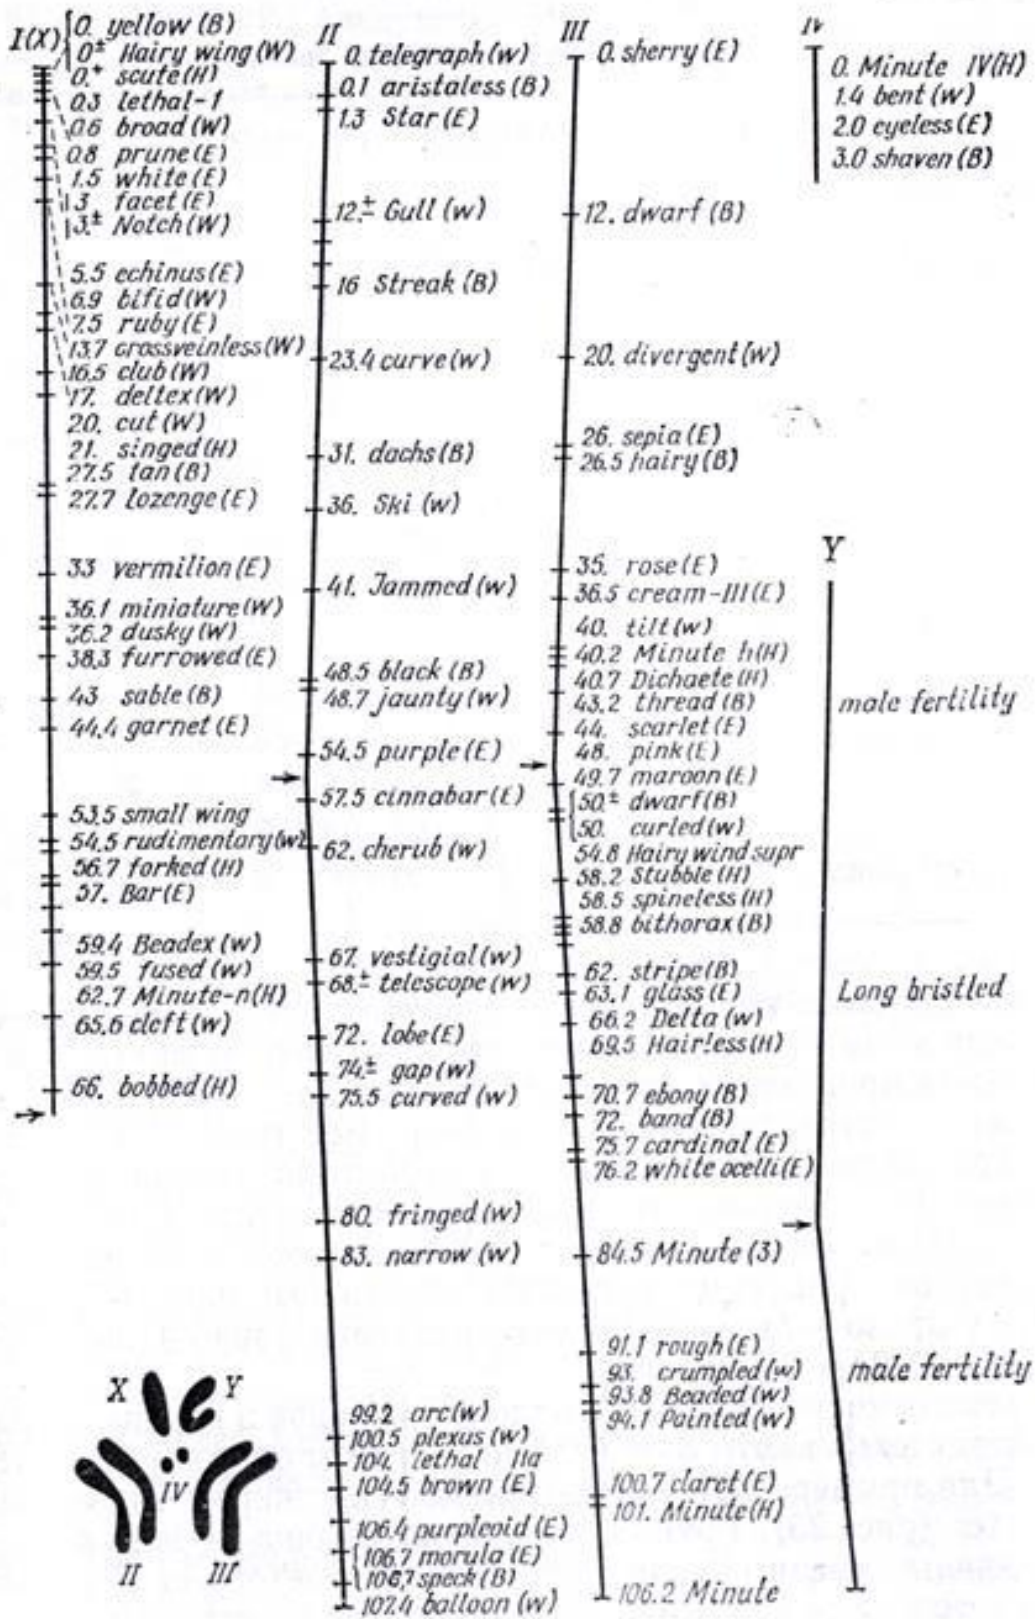 I(X)
0. yellow (B)
0± Hairy wing (W)
0.+ scute (H)
0.3 lethal-1
0.6 broad (W)
0.8 prune (E)
1.5 white (E)
3 facet (E)
3.± Notch (W)
5.5 echinus (E)
6.9 bifid (W)
7.5 ruby (E)
13.7 crossveinless (W)
16.5 club (W)
17. deltex (W)
20. cut (W)
21. singed (H)
27.5 tan (B)
27.7 lozenge (E)
33 vermilion (E)
36.1 miniature (W)
36.2 dusky (W)
38.3 furrowed (E)
43 sable (B)
44.4 garnet (E)
53.5 small wing
54.5 rudimentary (w)
56.7 forked (H)
57. Bar (E)
59.4 Beadex (w)
59.5 fused (w)
62.7 Minute-n (H)
65.6 cleft (w)
66. bobbed (H)
II
0. telegraph (w)
0.1 aristaless (B)
1.3 Star (E)
12.± Gull (w)
16 Streak (B)
23.4 curve (w)
31. dachs (B)
36. Ski (w)
41. Jammed (w)
48.5 black (B)
48.7 jaunty (w)
54.5 purple (E)
57.5 cinnabar (E)
62. cherub (w)
67. vestigial (w)
68.± telescope (w)
72. lobe (E)
74.± gap (w)
75.5 curved (w)
80. fringed (w)
83. narrow (w)
99.2 arc (w)
100.5 plexus (w)
104. lethal IIa
104.5 brown (E)
106.4 purpleoid (E)
106.7 morula (E)
106,7 speck (B)
107.4 balloon (w)
III
0. sherry (E)
12. dwarf (B)
20. divergent (w)
26. sepia (E)
26.5 hairy (B)
35. rose (E)
36.5 cream-III (E)
40. tilt (w)
40.2 Minute h (H)
40.7 Dichaete (H)
43.2 thread (B)
44. scarlet (E)
48. pink (E)
49.7 maroon (E)
50.± dwarf (B)
50. curled (w)
54.8 Hairy wind supr
58.2 Stubble (H)
58.5 spineless (H)
58.8 bithorax (B)
62. stripe (B)
63.1 glass (E)
66.2 Delta (w)
69.5 Hairless (H)
70.7 ebony (B)
72. band (B)
75.7 cardinal (E)
76.2 white ocelli (E)
84.5 Minute (3)
91.1 rough (E)
93. crumpled (w)
93.8 Beaded (w)
94.1 Pointed (w)
100.7 claret (E)
101. Minute (H)
106.2 Minute
IV
0. Minute IV (H)
1.4 bent (w)
2.0 eyeless (E)
3.0 shaven (B)
Y
male fertility
Long bristled
male fertility
X Y
IV
II III